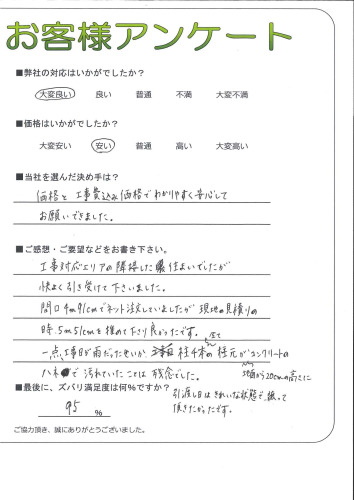 お客様アンケート
■弊社の対応はいかがでしたか？
大変良い 良い 普通 不満 大変不満
■価格はいかがでしたか？
大変安い 安い 普通 高い 大変高い
■当社を選んだ決め手は？
価格と工事費込み価格でわかりやすく安心して
お願いできました。
■ご感想・ご要望などをお書き下さい。
工事対応エリアの隣接した住まいでしたが
快よく引き受けて下さいました。
間口4m91cmでネット注文していましたが現地の見積りの
時、5m51cmを極めて下さり良かったです。
一点、工事日が雨だったせいか、柱4本の全て柱元がコンクリートの
ハネで汚れていたことは残念でした。
地面から20cmの高さに
引渡し日はきれいな状態で扱って
頂きたかったです。
■最後に、ズバリ満足度は何％ですか？
95 %
ご協力頂き、誠にありがとうございました。